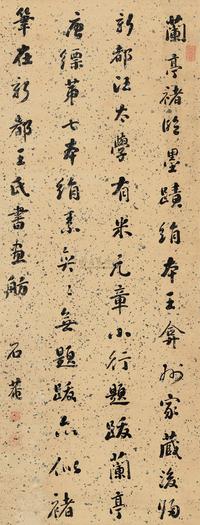 蘭亭褚临墨蹟絹本王弇州家蔵後歸
新都汪太學有米元章小行題跋蘭亭
唐缥第七本絹素無題跋亦似褚
筆在新都王氏書畫舫
石菴